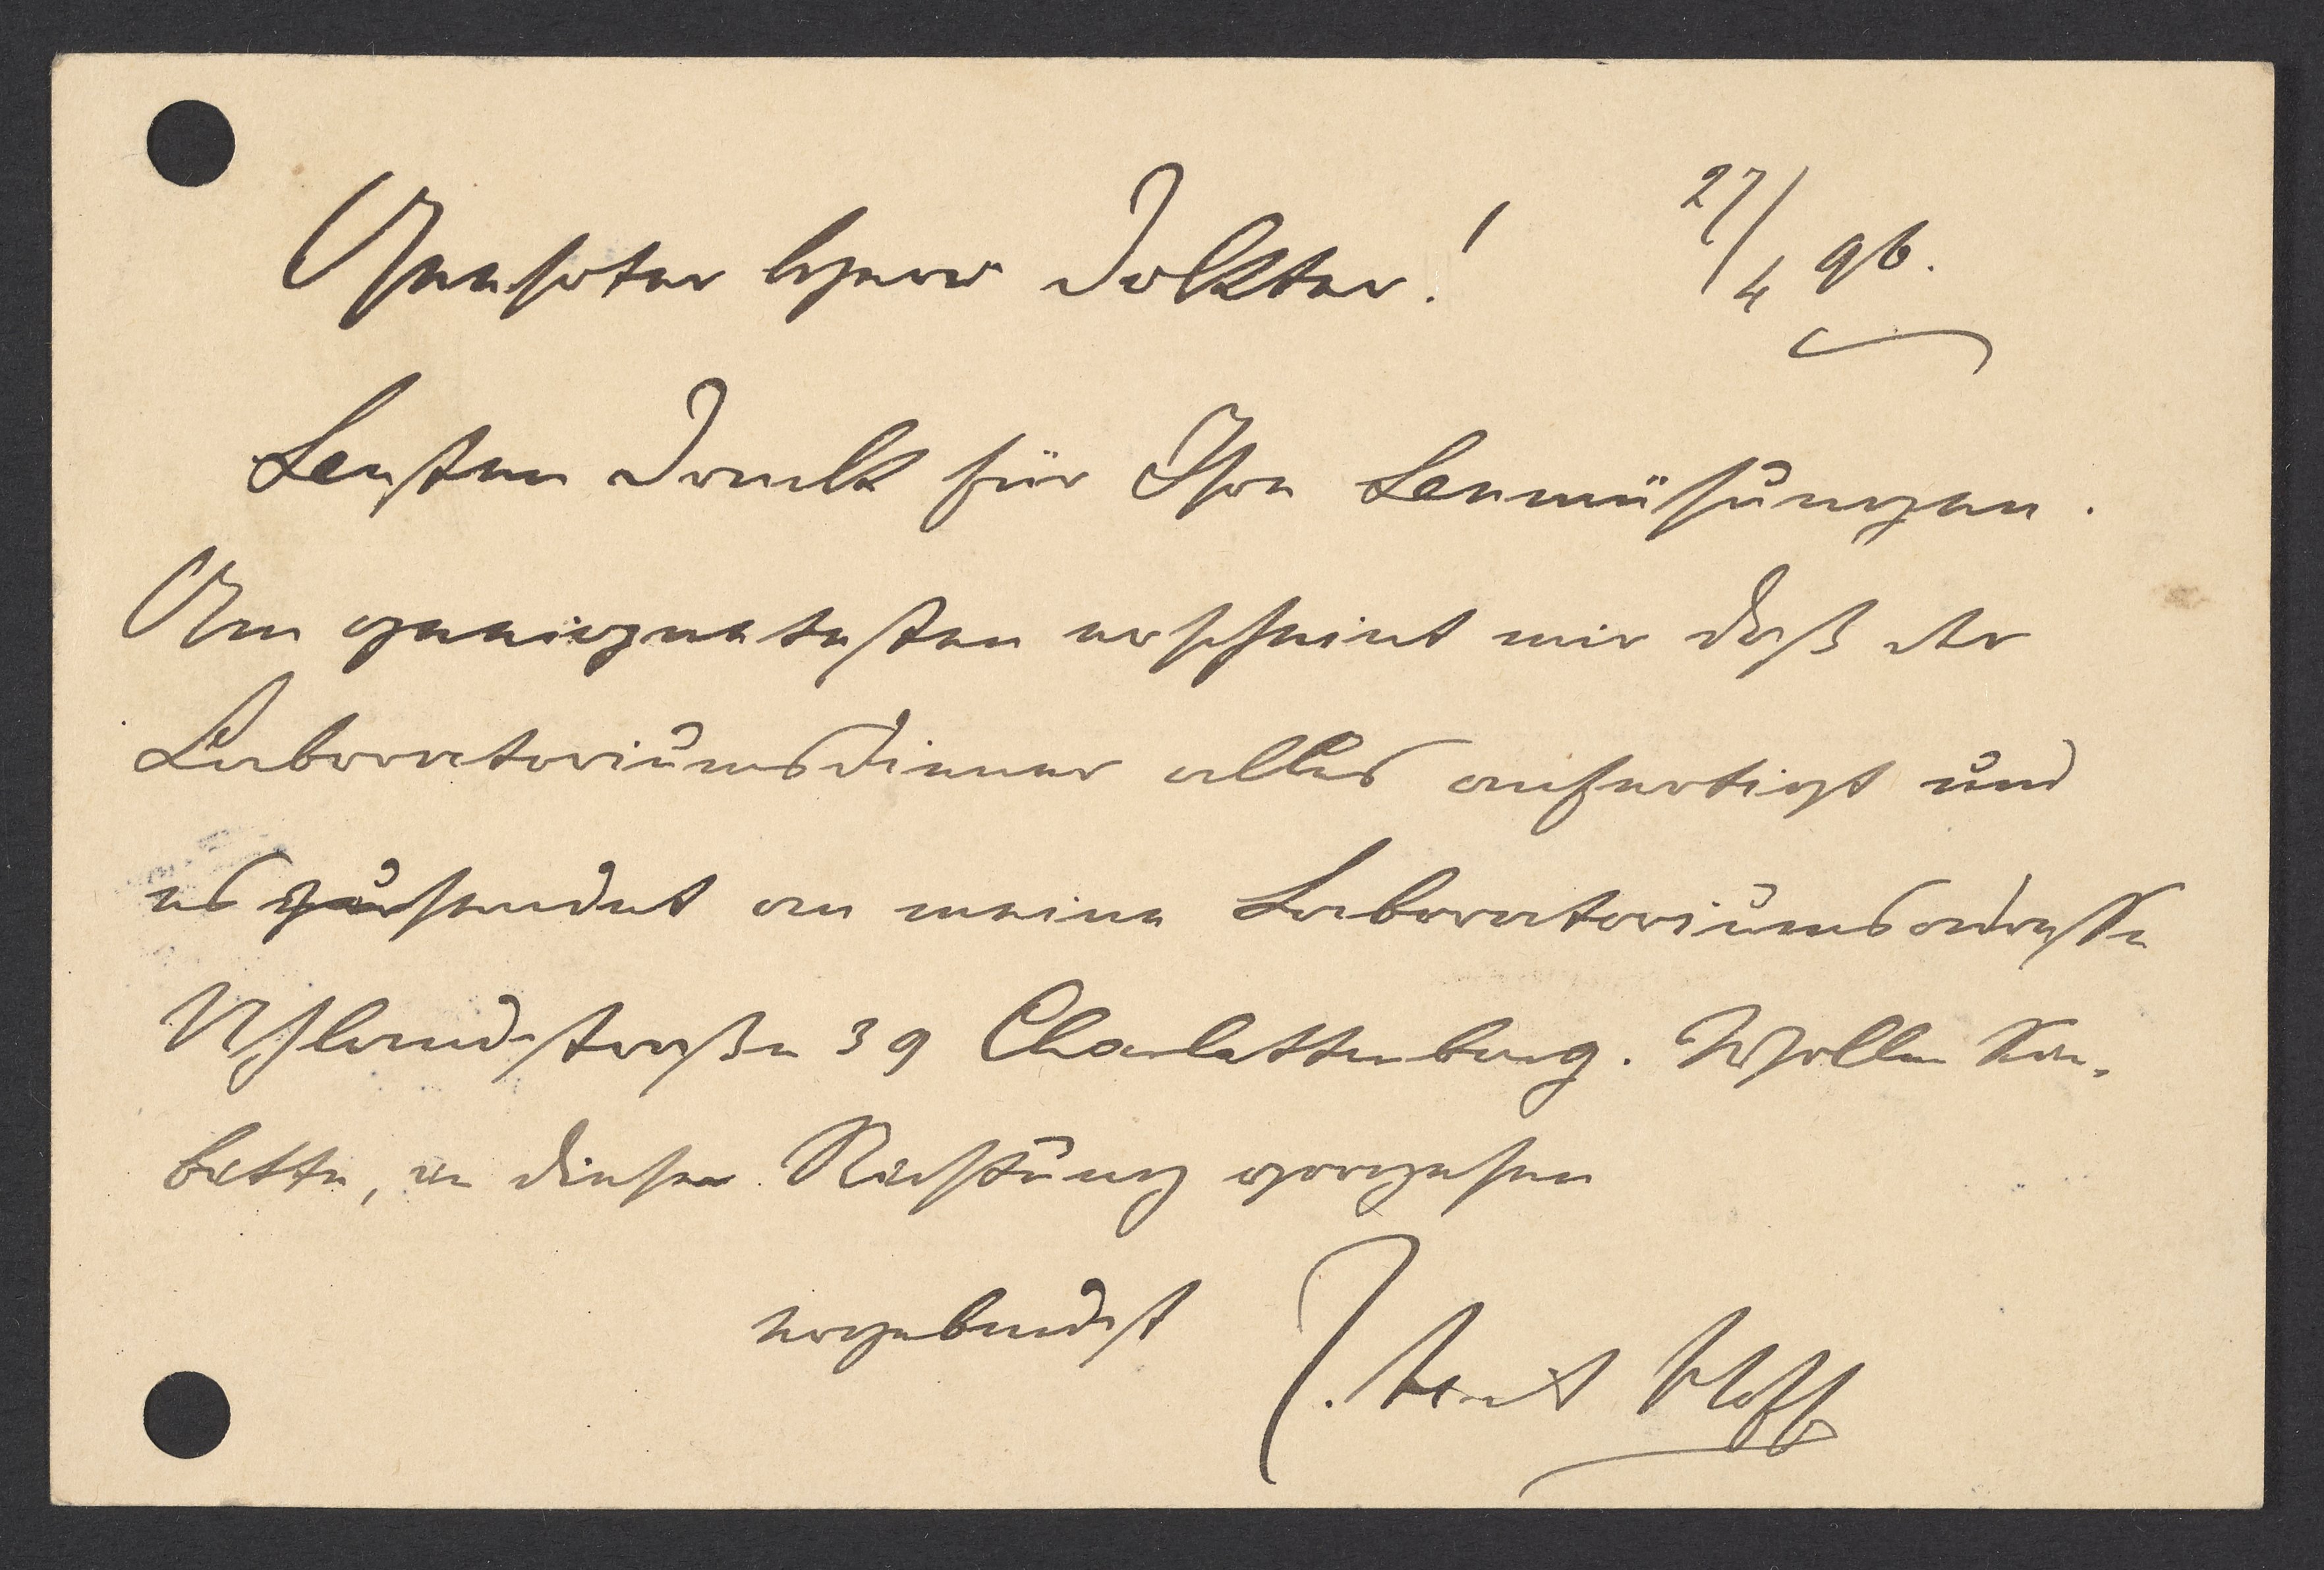 Geehrter Herr Doktor! 27/4 96.
Besten Dank für Ihre Bemühungen.
Am geeignetesten erscheint mir daß der
Laboratoriumsdiener alles anfertigt und
es zusendet an meine Laboratoriumsadresse
Uhlandstraße 39 Charlottenburg. Wollen Sie,
bitte, in dieser Richtung vorgehen
ergebendst J. H. van't Hoff